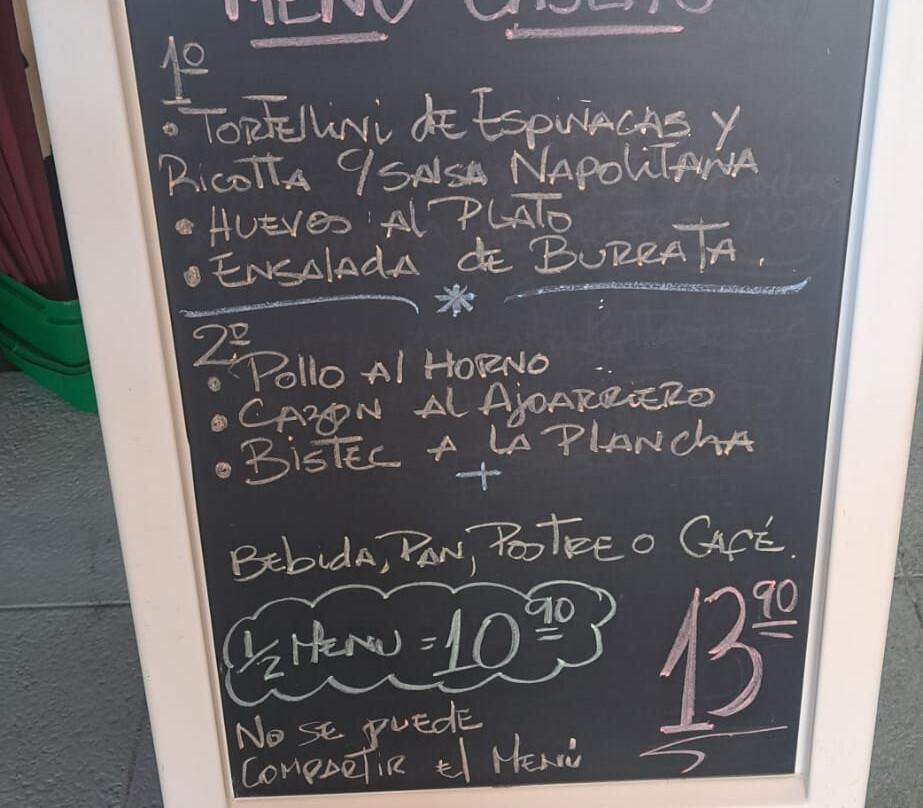 MENÚ CASERO
1º
• TORTELLINI DE ESPINACAS Y
RICOTTA C/SALSA NAPOLITANA
• HUEVOS AL PLATO
• ENSALADA DE BURRATA.
2º
• POLLO AL HORNO
• CAZON AL AJOARRIERO
• BISTEC A LA PLANCHA
+
BEBIDA, PAN, POSTRE O CAFÉ.
1/2 MENU = 10 90
13 90
NO SE PUEDE
COMPARTIR EL MENÚ